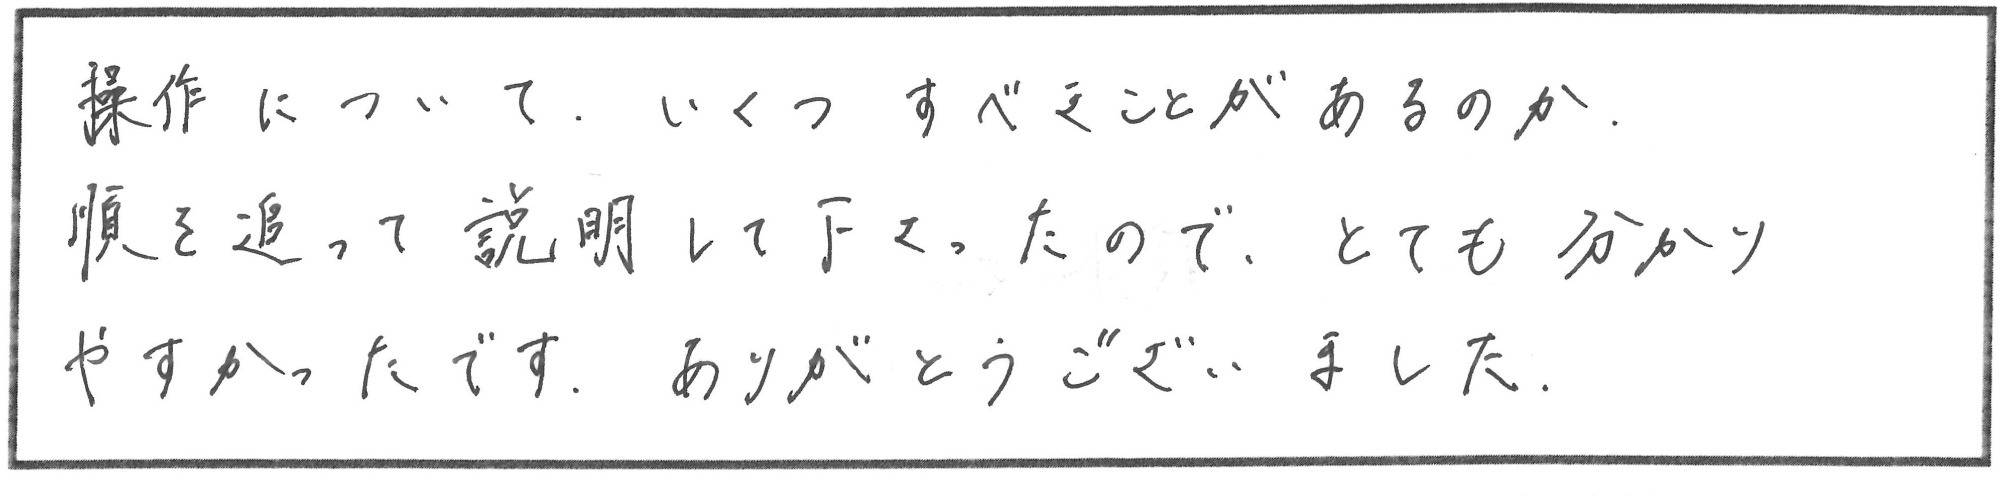 操作について、いくつすべきことがあるのか、
順を追って説明して下さったので、とても分かり
やすかったです。ありがとうございました。